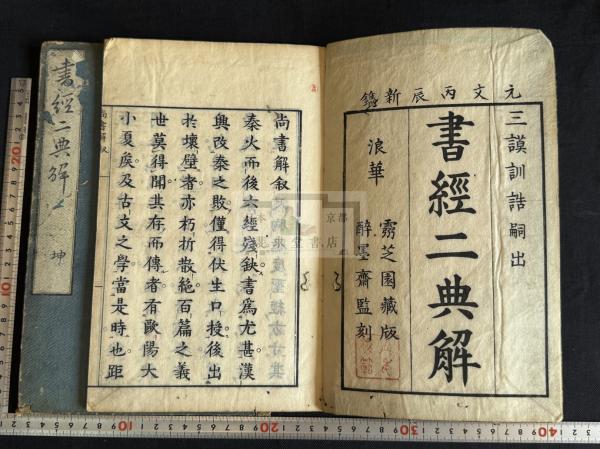 元文丙辰新鐫
三謨訓誥嗣出
書經二典解
浪華
霧芝園藏版
醉墨齋監刻
尚書解叙
秦火而後六經殘缺書爲尤甚漢
興改秦之敗僅得伏生口授後出
於壞壁者亦朽折散絕百篇之義
世莫得聞其存而傳者有歐陽大
小夏矦及古文之學當是時也距
尚書解叙
書經二典解
坤